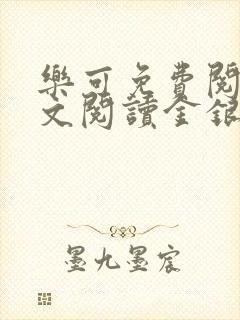 樂可免費閱
文閱讀金銀
墨九墨宸